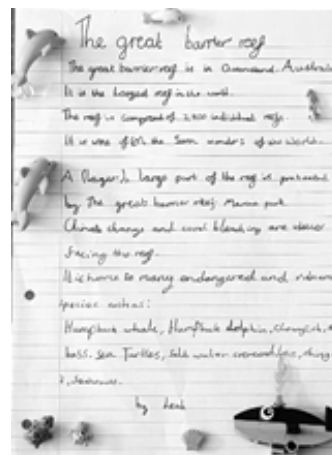 The great barrier reef
The great barrier reef is in Queensland, Australia
It is the largest reef in the world.
The reef is composed of 2,900 individual reefs.
It is one of the Seven wonders of the World.
A large part of the reef is protected
by The great barrier reef Marine park
Climate change and coral bleaching are
facing the reef.
It is home to many endangered and
species such as:
Humpback whale, Humpback dolphin,
Sea Turtles, Salt water crocodiles,
by Leah